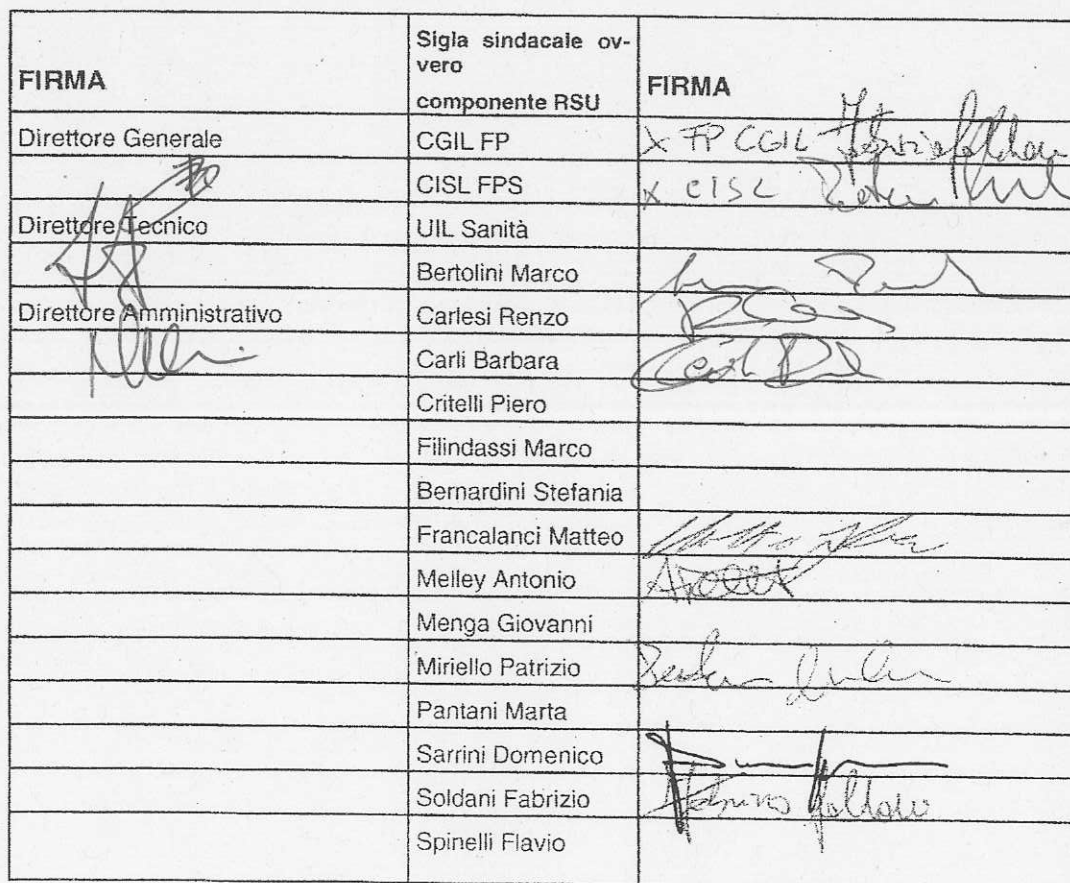 FIRMA
Sigla sindacale ov-
vero
componente RSU
FIRMA
Direttore Generale
CGIL FP
X FP CGIL
CISL FPS
X CISL
Direttore Tecnico
UIL Sanità
Bertolini Marco
Direttore Amministrativo
Carlesi Renzo
Carli Barbara
Critelli Piero
Filindassi Marco
Bernardini Stefania
Francalanci Matteo
Melley Antonio
Menga Giovanni
Miriello Patrizio
Pantani Marta
Sarrini Domenico
Soldani Fabrizio
Spinelli Flavio